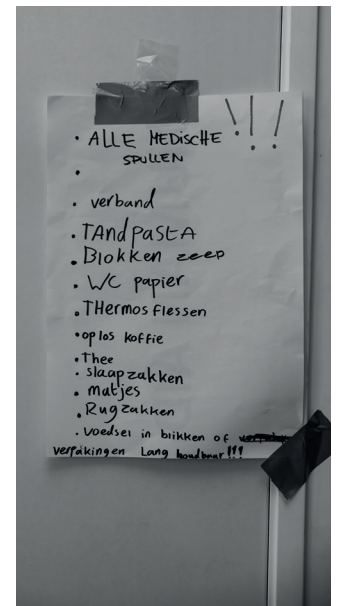 !!!
• ALLE MEDISCHE
SPULLEN
•
• verband
• TAndpastA
• Blokken zeep
• WC papier
• THermos flessen
• oplos koffie
• Thee
• slaapzakken
• matjes
• Rugzakken
• Voedsel in blikken of
verpakingen Lang houdbaar!!!